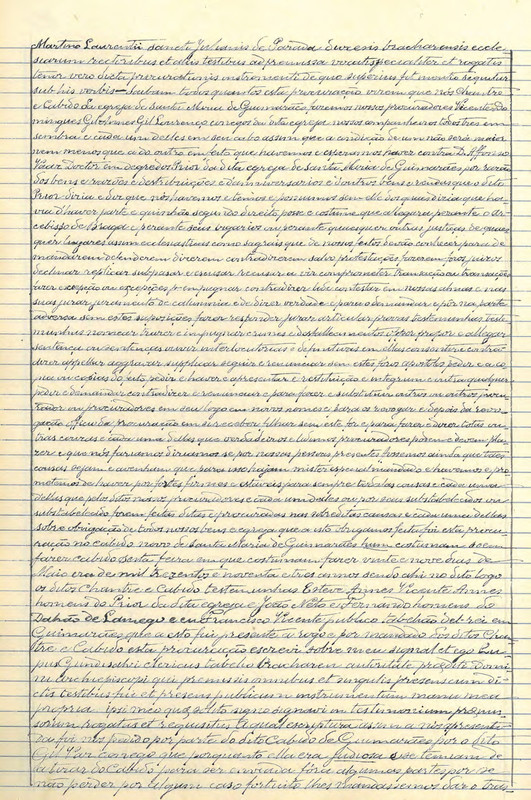 Martino Laurentii sancti Juliani de Parada durensis bracharensis eccle-
siarum rectoribus et aliis testibus ad premissa vocatis specialiter et rogatis
tenor vero dicta procurationis instrumento de que superius fit mentio sequitur
sub his verbis = Saibam todos quantos esta procuração virem que nós Chantre
e Cabido da egreja de Santa Maria de Guimarães fazemos nossos procuradores Vicente Do-
mingues Gil Lourenço conegos da dita egreja nossos companheiros todos tres em
sembra e cada um delles em seu cabo assim que a condição de um não será maior
nem menos que a do outro em feito que havemos e esperamos haver contra D. Affonso
Doctor em degredos Prior da dita egreja de Santa Maria de Guimarães por razão
dos bens e razões e destribuições e d'anniversarios e d'outros bens e rendas que o dito
Prior diria e diz que nós havemos e temos e possuimos sem elle dos quaes diria que ha-
via d'haver parte e quinhão segundo direito, posse e costume que allegara perante o Ar-
cebispo de Braga e perante seus vigarios ou perante quaesquer outras justiças de quaes-
quer lugares assim ecclesiasticas como sagraes que de nossos feitos devão conhecer para de-
mandarem defenderem dizerem contradizerem
declinar replicar
fazer excepção ou excepções e impugnar contradizer lide contestar em nossas almas e nas
suas jurar juramento de calumnia e de dizer verdade e para o demandar e pôr na parte
adversa sem estes suposições fazer responder jurar articular provas testemunhas teste-
munhos nomear trazer e impugnar crimes e
sentença ou sentenças ouvir interlocutorias e definitivas em ellas consentir e contra-
dizer appellar aggravar supplicar seguir e renunciar
pia ou copias do feito pedir e haver e apresentar e restituição in integrum e outra qualquer
pedir e demandar contradizer e renunciar e para fazer e substituir outro ou outros procu-
rador ou procuradores em seu logo em nosso nome e para os revogar e depois da revo-
gação officio da procuração em si receber e para fazer e dizer todas ou-
tras cousas e cada uma dellas que verdadeiros e lidimos procuradores podem e devem fa-
zer e que nós fariamos diriamos se por nossas pessoas presentes fossemos ainda que taes
cousas sejam e avenham que para isso hajam mister especial mandado e havemos e pro-
mettemos d'haver por fortes firmes e estaveis para sempre todas las cousas e cada uma
dellas que pelos ditos nossos procuradores e cada um delles ou por seus substabelecidos ou
substabelecido forem feitas ditas e procuradas nas sobreditas cousas e cada uma dellas
sobre obrigação de todos nossos bens e egreja que a isto obrigamos feita foi esta procu-
ração no cabido novo de Santa Maria de Guimarães hum costumam soem
fazer cabido sexta feira em que costumam fazer vinte e nove dias de
Maio era de mil trezentos e noventa e tres annos sendo ahi no dito logo
os ditos Chantre e Cabido testemunhas Estevo Annes Vicente Annes
homens do Prior da dita egreja e João Netto e Fernando homens do
Dahão de Lamego e eu Francisco Vicente publico tabelião del rei em
Guimarães que a isto fui presente a rogo e por mandado dos ditos Chan-
tre e Cabido esta procuração escrevi sobre meu signal et ego Lu-
pus Gundisalvi clericus tabelio Bracharen autoritate prædicte Domi-
ni archiepiscopi qui premissis omnibus et singulis presens cum di-
ctis testibus fui et presens publicum instrumentum manu mea
propria ipsi meo que solito signo signavi in testimonium præmis-
sorum rogatus et requisitus A qual escriptura assim a nós apresenta-
da foi nos pedido por parte do dito Cabido de Guimarães por o dito
Gil Vaz conego que porquanto ella era judiosa e se temiam de
a tirar do Cabido para ser enviada fóra algumas partes por se
não perder por algum caso fortuito lhes mandassemos dar o tras-